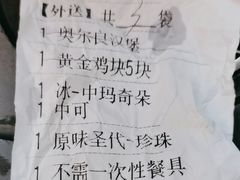 【外送】共3袋
1 奥尔良汉堡
1 黄金鸡块5块
1 冰-中玛奇朵
1 中可
1 原味圣代-珍珠
1 不需一次性餐具